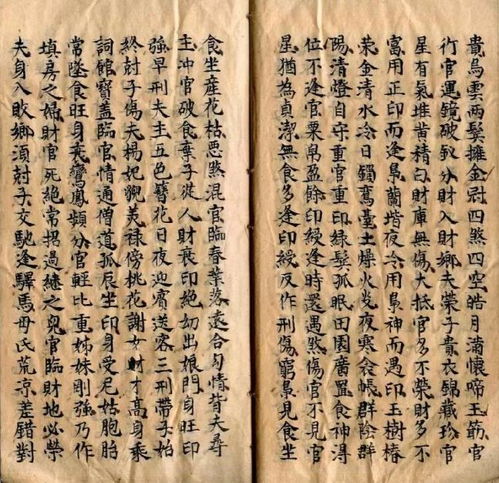 貴烏雲兩鬓金冠四煞四空皓月滿懷啼玉筯官
行官運鏡破釵分財入財鄉夫榮子貴衣錦藏珍官
星有氣堆黃積白財庫無傷大抵官多不榮財多不
富用正印而逢梟蘭堦夜冷用梟神而遇印玉樹椿
荣金清水冷日鎖鸞臺土燥火炎夜寒衾帳群陰群
陽清燈自守重官重印綠鬓孤眠田園廣置食神得
位不逢官粟帛盈餘印綬逢時還遇煞傷官不見官
星猶為貞潔無食多逢印綬反作刑傷窮梟見食坐
食坐産花枯恶煞混官臨春葉落遠合勾情背夫尋
主冲官破食棄子從人財衰印絕幼出娘門身旺印
強早刑夫主五色簪花日夜迎賓送客三刑帶子始
終尅子傷夫楊妃貌美禄傍桃花謝女才高身乘
詞館寶盖臨官情通僧道孤辰坐印身受尼姑胞胎
常墜食旺身衰鸞鳳頻分官輕比重姊妹剛強乃作
填房之婦財官死絕常招過継之兒官臨財地必榮
夫身入敗鄉須尅子文馳逢驛馬母氏荒凉差錯對